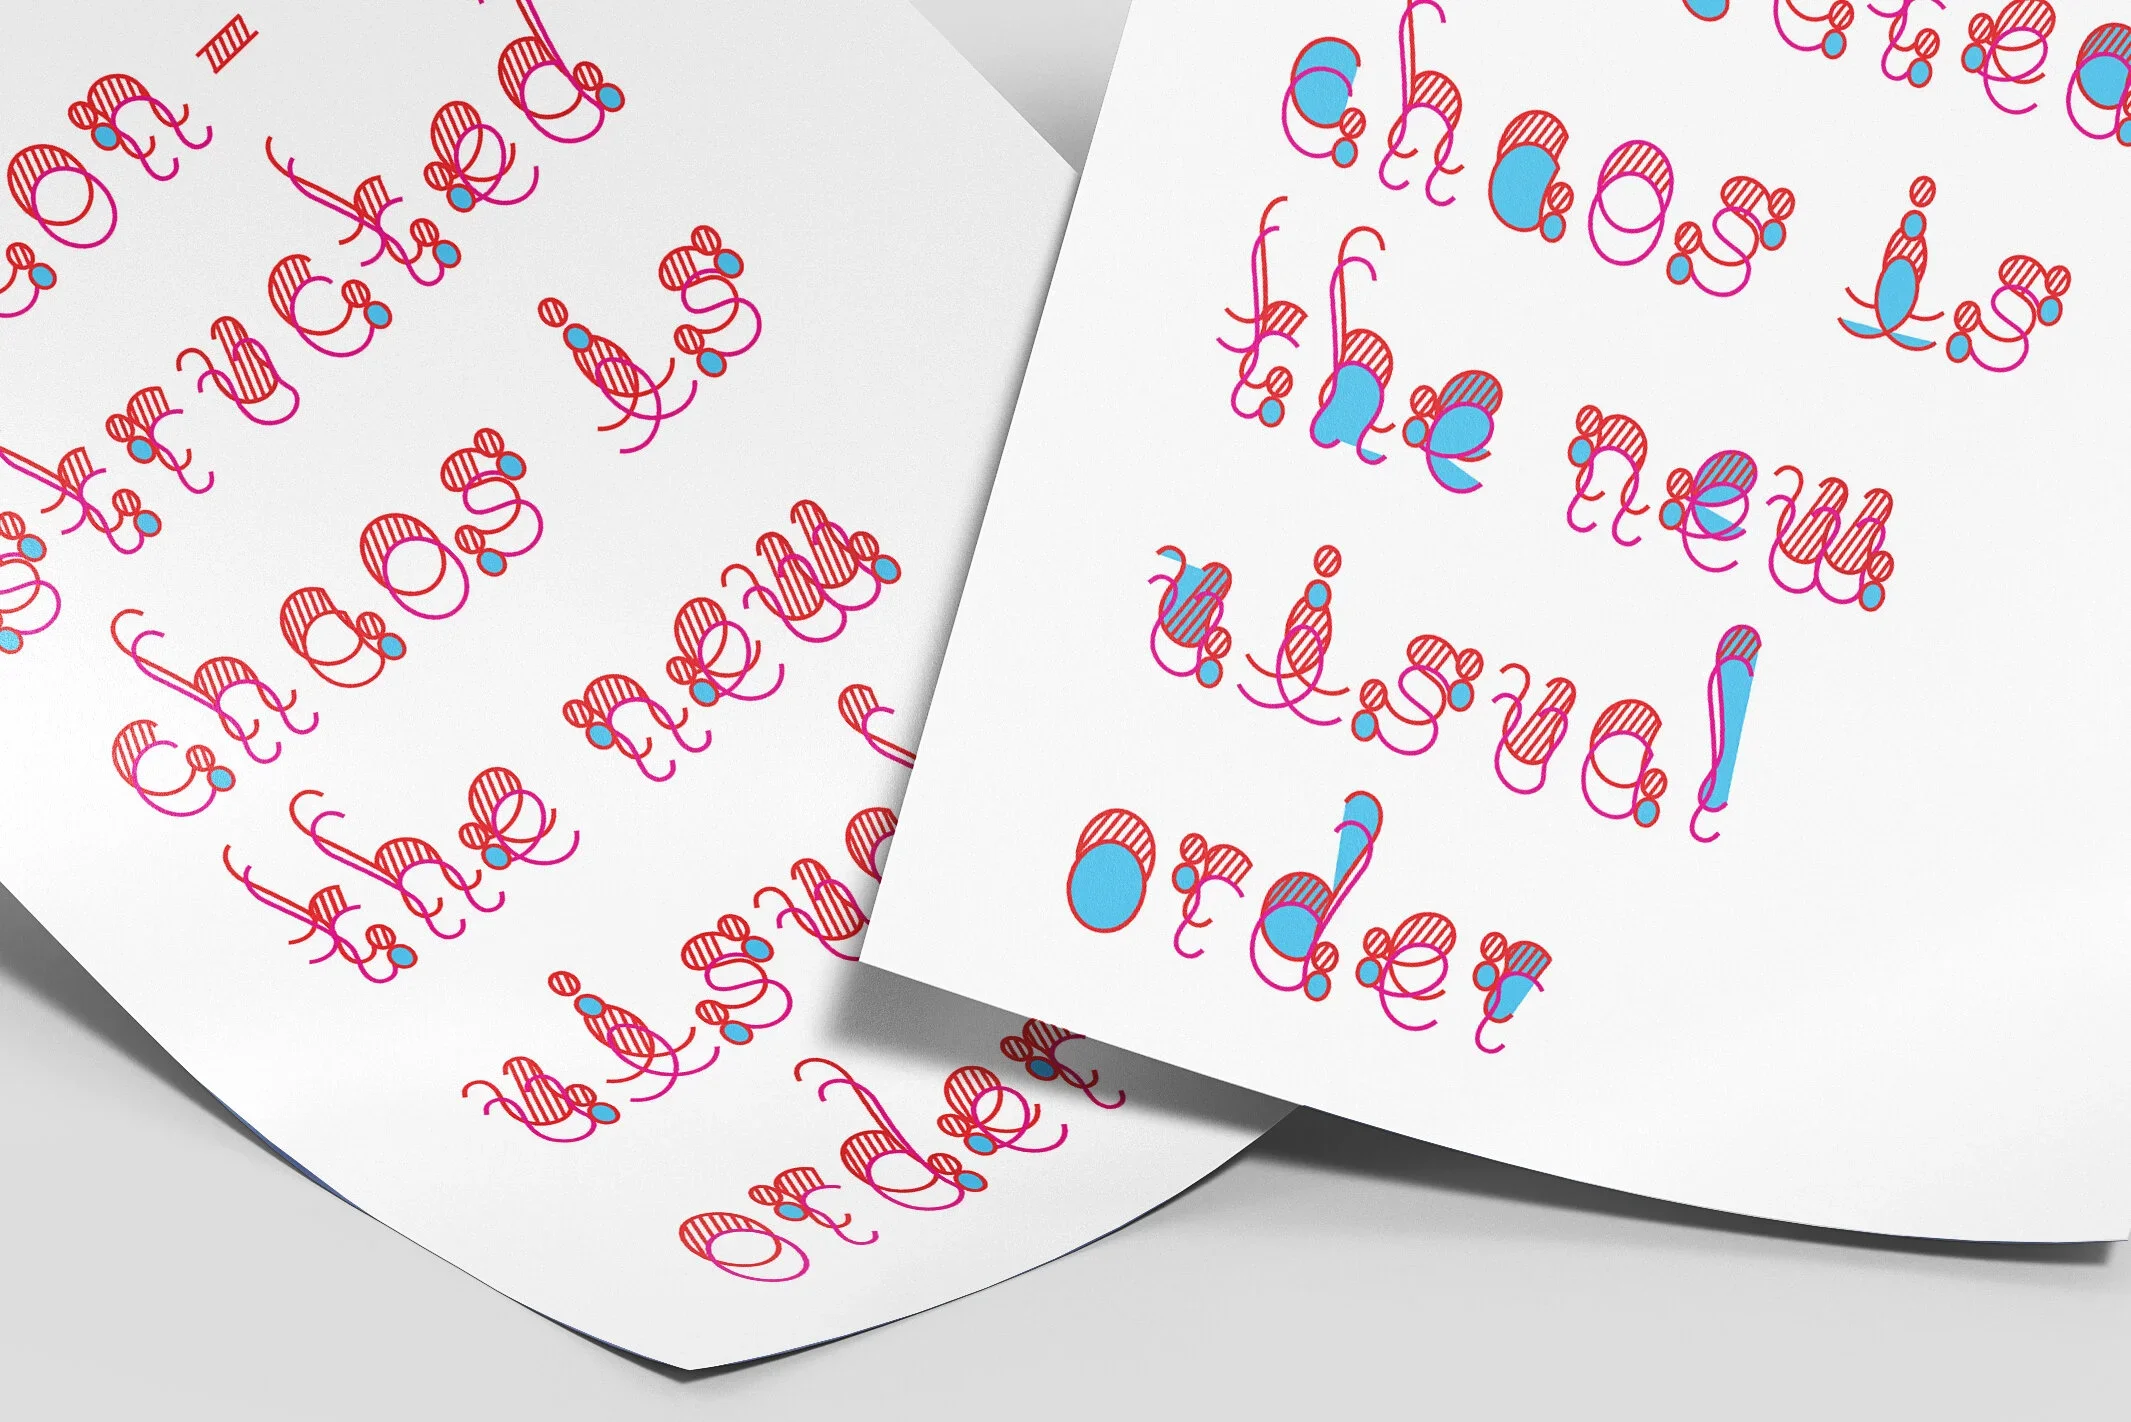 con-
structed
chaos is
the new
visual
order
chaos is
the new
visual
order